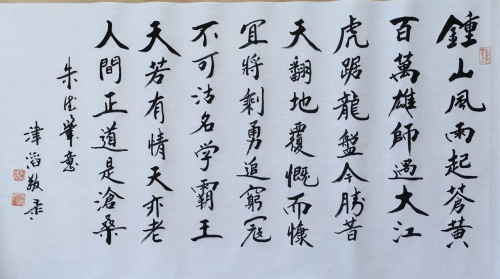 鍾山風雨起蒼黄
百萬雄師過大江
虎踞龍盤今勝昔
天翻地覆慨而慷
宜將剩勇追窮寇
不可沽名学霸王
天若有情天亦老
人間正道是滄桑
朱筆意
津滔敬录